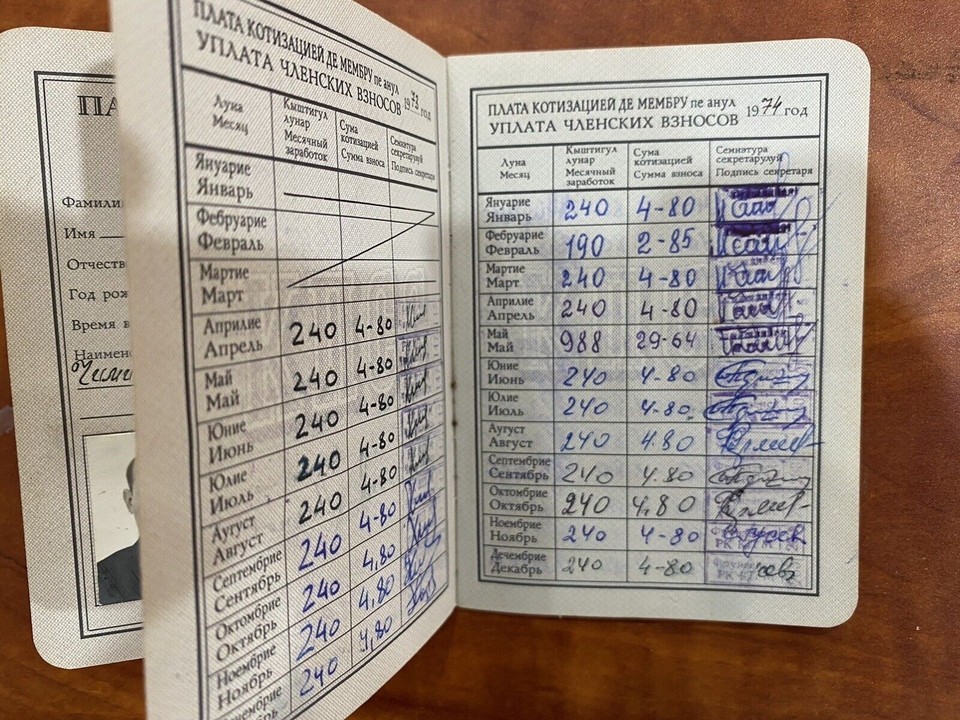 ПА
Фамили
Имя
Отчеств
Год рож
Время в
Наимен
ПЛАТА КОТИЗАЦИЕЙ ДЕ МЕМБРУ пе анул
УПЛАТА ЧЛЕНСКИХ ВЗНОСОВ 1973 год
Луна Месяц
Кыштигул лунар Месячный заработок
Сума котизацией Сумма взноса
Семнэтура секретарулуй Подпись секретаря
Януарие
Январь
Фебруарие
Февраль
Мартие
Март
Априлие
Апрель 240 4-80
Май
Май 240 4-80
Юние
Июнь 240 4-80
Юлие
Июль 240 4-80
Аугуст
Август 240 4-80
Септембрие
Сентябрь 240 4-80
Октомбрие
Октябрь 240 4,80
Ноембрие
Ноябрь 240 4,80
240 4,80
ПЛАТА КОТИЗАЦИЕЙ ДЕ МЕМБРУ пе анул
УПЛАТА ЧЛЕНСКИХ ВЗНОСОВ 1974 год
Луна Месяц
Кыштигул лунар Месячный заработок
Сума котизацией Сумма взноса
Семнэтура секретарулуй Подпись секретаря
Януарие
Январь 240 4-80
Фебруарие
Февраль 190 2-85
Мартие
Март 240 4-80
Априлие
Апрель 240 4-80
Май
Май 988 29-64
Юние
Июнь 240 4-80
Юлие
Июль 240 4-80
Аугуст
Август 240 4.80
Септембрие
Сентябрь 240 4.80
Октомбрие
Октябрь 240 4,80
Ноембрие
Ноябрь 240 4-80
Дечембрие
Декабрь 240 4-80